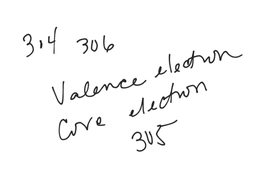 314 306
Valence electron
Core electron
305